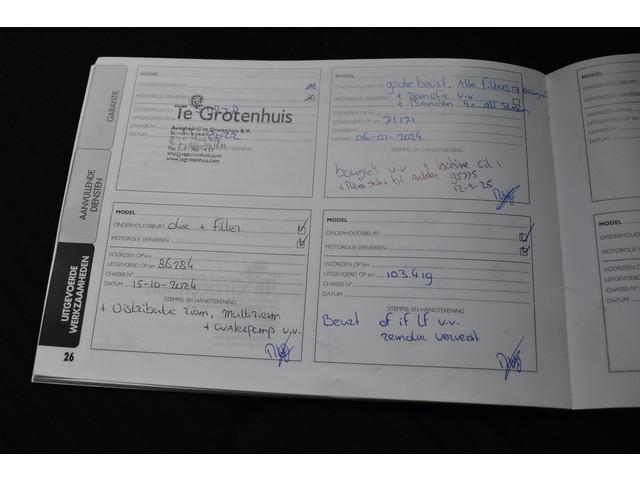 GARANTIE
AANVULLENDE
DIENSTEN
UITGEVOERDE
WERKZAAMHEDEN
26
MODEL
ONDERHOUDSBEURT
MOTOROLIE VERVERSEN
VOORZIEN OP km
UITGEVOERD OP km
CHASSIS N°
DATUM
Te Grotenhuis
Autobedrijf te Grotenhuis B.V.
www.tegrotenhuis.com
MODEL
ONDERHOUDSBEURT grote beurt. Alle filters
MOTOROLIE VERVERSEN + remolie v.v.
VOORZIEN OP km + Banden 4x All season
UITGEVOERD OP km 71.171
CHASSIS N°
DATUM 06-01-2024
STEMPEL EN HANDTEKENING
bougie's v.v. + bobine cil 1
95775
12-5-25
MODEL
ONDERHOUDSBEURT olie + filter
MOTOROLIE VERVERSEN
VOORZIEN OP km
UITGEVOERD OP km 86284
CHASSIS N°
DATUM 15-10-2024
STEMPEL EN HANDTEKENING
+ Distributie riem, multiriem
+ waterpomp v.v.
MODEL
ONDERHOUDSBEURT
MOTOROLIE VERVERSEN
VOORZIEN OP km
UITGEVOERD OP km 103.419
CHASSIS N°
DATUM
STEMPEL EN HANDTEKENING
Beurt of if lf v.v.
remolie ververst
MODEL
ONDERHOUDSB
MOTOROLIE VE
VOORZIEN OP
UITGEVOERD
CHASSIS N°
DATUM
MODEL
ONDERHOUD
MOTOROLIE
VOORZIEN
UITGEVOER
CHASSIS
DATUM